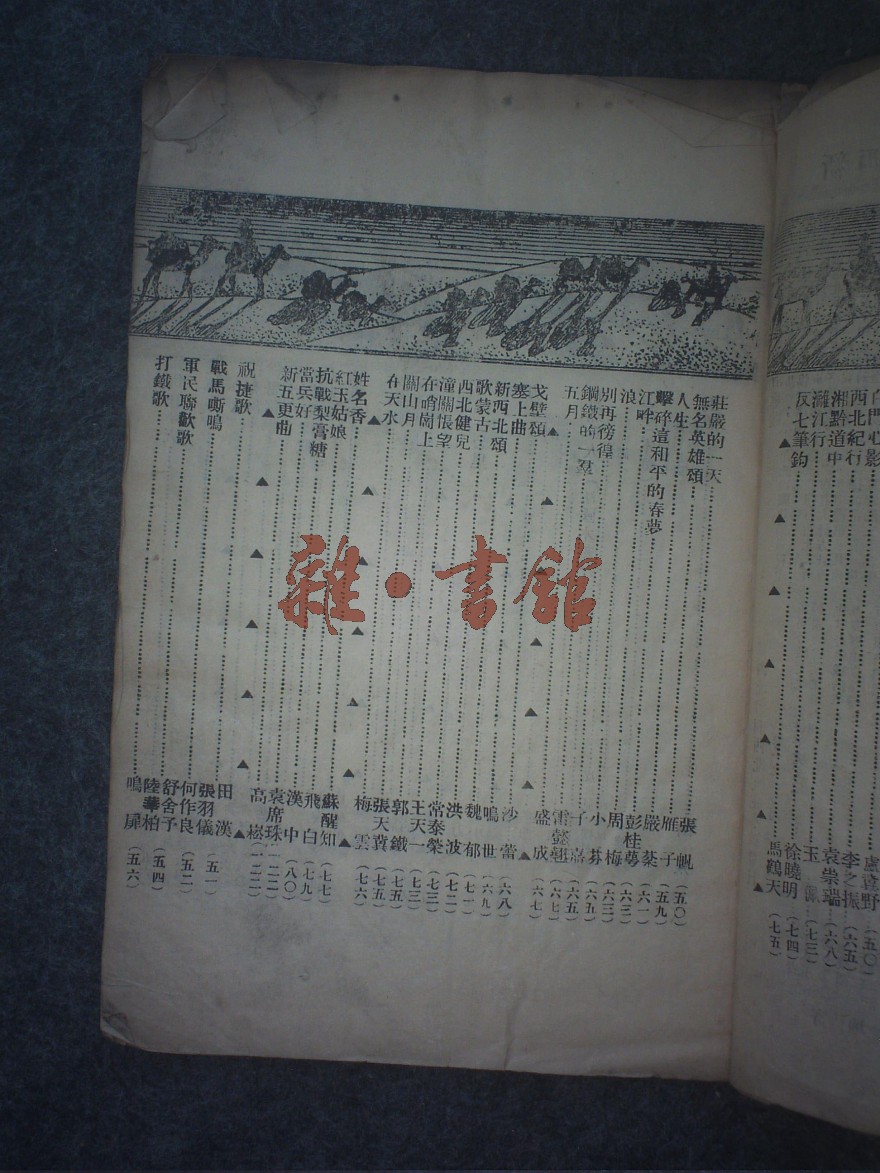 李之振（六五）
白門心影
西北紀行 袁崇瑞（六八）
湘黔道中
灕江行 徐曉明（七四）
反七筆鈎 馬鶴天（七五）
莊嚴的一天 張帆（五〇）
無名英雄頌 雁子（五九）
人生 嚴棻（六一）
擊碎這和平的春夢 彭桂蕚（六三）
江畔 周梅（六三）
浪 小芬（六五）
別再徬徨 子嘉（六五）
鋼鐵的一羣 雷懿翹（六七）
五月 盛成（六七）
戈壁頌 沙蕾（六八）
塞上曲 鳴世（六九）
新西北頌 魏郁（七一）
歌蒙古 洪波（七二）
西北健兒 常泰榮（七三）
潼關悵望 王天一（七三）
在哨崗上 郭鐵（七五）
關山月 張天冀（七五）
在天水 梅雲（七六）
姓名香 蘇醒知（七七）
紅玉姑娘 飛白（七九）
抗戰梨膏糖 漢中（八〇）
當兵好 袁席珠（一二二）
新五更曲 高崧（一二二）
祝捷歌 田漢
張羽儀（五一）
戰馬嘶鳴 何作良（五二）
軍民聯歡歌 舒舍予
陸華柏（五四）
打鐵歌 鳴犀（五六）
雜·書館